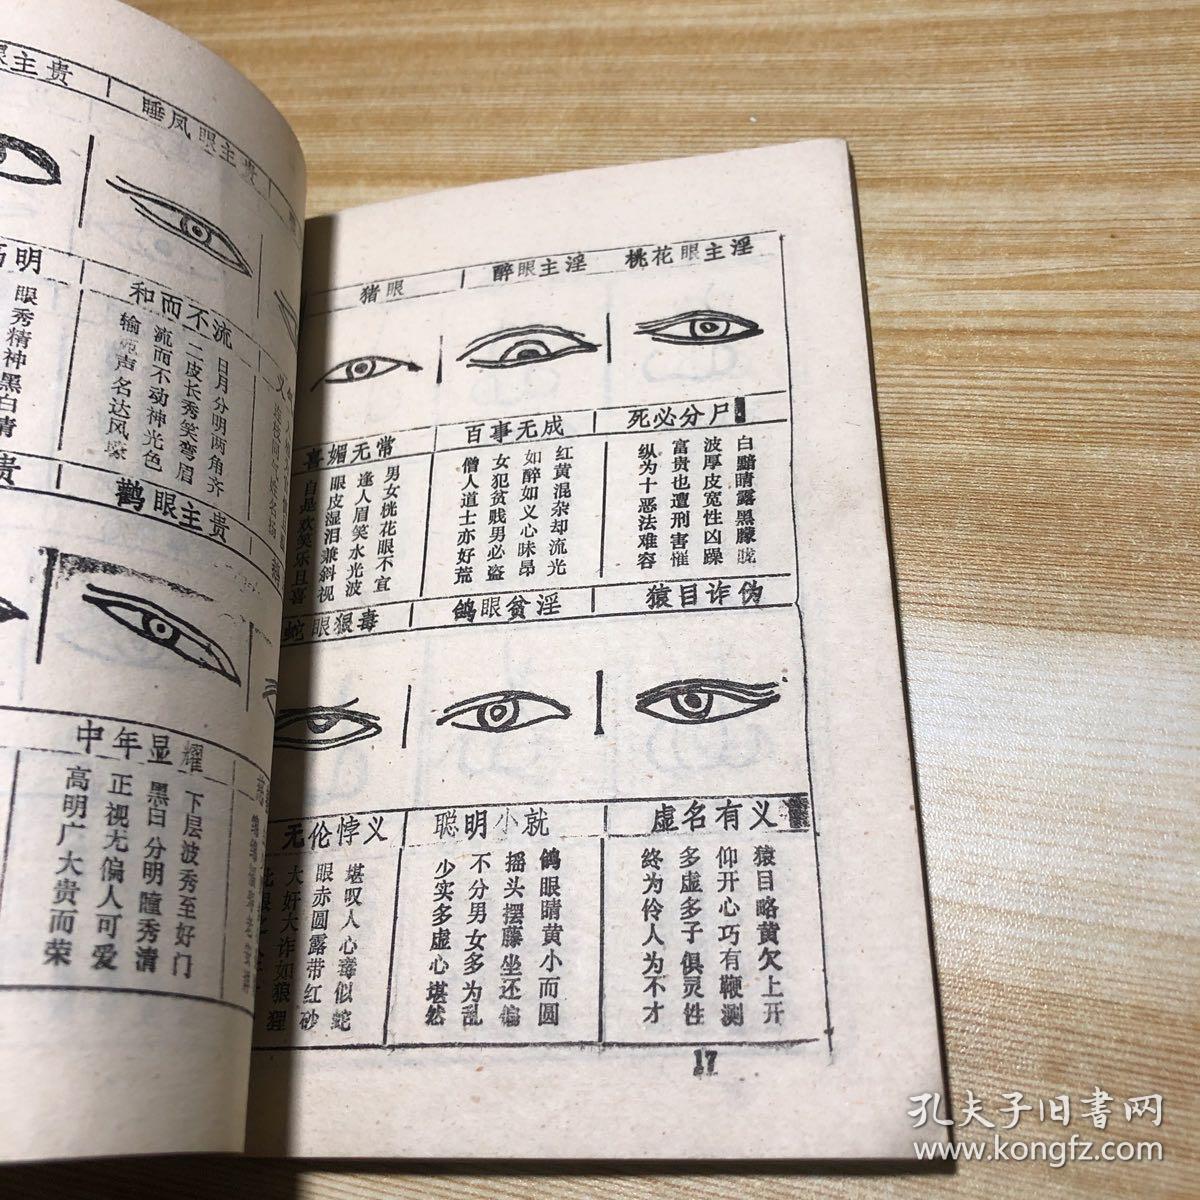 眼主贵
睡凤眼主贵
高明
和而不流
眼秀精神黑白清
日月分明两角齐
二皮长秀笑弯眉
流而不动神光色
声名达风
贵
鹳眼主贵
中年显耀
下层波秀至好门
黑白分明瞳秀清
正视尢偏人可爱
高明广大贵而荣
桃花眼主淫
醉眼主淫
猪眼
死必分尸
白黯睛露黑朦胧
波厚皮宽性凶躁
富贵也遭刑害催
纵为十恶法难容
百事无成
红黄混杂却流光
如醉如义心味昂
女犯贫贱男必盗
僧人道士亦好荒
喜媚无常
男女桃花眼不宜
逢人眉笑水光波
眼皮湿泪兼斜视
自是欢笑乐且喜
猿目诈伪
鸽眼贫淫
蛇眼狠毒
虚名有义
猿目略黄欠上开
仰开心巧有鞭测
多虚多子俱灵性
终为伶人为不才
聪明小就
鸽眼睛黄小而圆
摇头摆藤坐还偏
不分男女多为乱
少实多虚心堪然
无伦悖义
堪叹人心毒似蛇
眼赤圆露带红砂
大好大诈如狼狸
17
孔夫子旧书网
www.kongfz.com